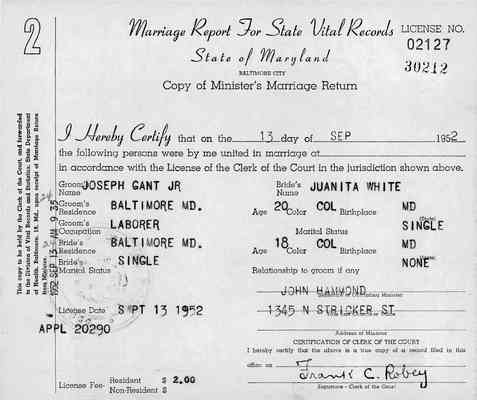 2
Marriage Report For State Vital Records
LICENSE NO.
02127
30212
State of Maryland
BALTIMORE CITY
Copy of Minister's Marriage Return
I Hereby Certify that on the 13 day of SEP 1952
the following persons were by me united in marriage at
in accordance with the License of the Clerk of the Court in the jurisdiction shown above.
Groom's Name JOSEPH GANT JR Bride's Name JUANITA WHITE
Groom's Residence BALTIMORE MD. Age 20 Color COL Birthplace MD
(State)
Groom's Occupation LABORER Marital Status SINGLE
Bride's Residence BALTIMORE MD. Age 18 Color COL Birthplace MD
Bride's Marital Status SINGLE Relationship to groom if any NONE
JOHN HAMMOND
License Date SEPT 13 1952 1345 N STRICKER ST.
APPL 20290
Address of Minister
CERTIFICATION OF CLERK OF THE COURT
I hereby certify that the above is a true copy of a record filed in this
office on
Frank C. Robey
Signature - Clerk of the Court
License Fee- Resident $ 2.00
Non-Resident $
This copy to be held by the Clerk of the Court, and forwarded
to the Division of Vital Records and Statistics, State Department
of Health, Baltimore, 18, Md., upon receipt of Marriage Return
from Minister.
1952 SEP 13 AM 9 35